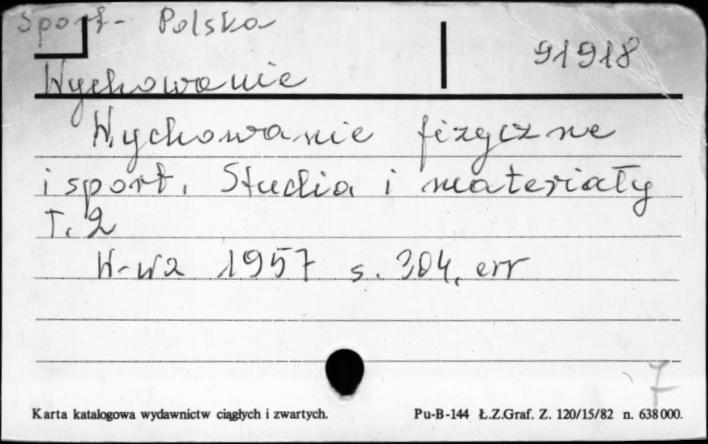 Sport - Polska
91918
Wychowanie
Wychowanie fizyczne
i sport. Studia i materiały
T. 2
W-wa 1957 s. 304, err
7
Karta katalogowa wydawnictw ciągłych i zwartych. Pu-B-144 Ł.Z.Graf. Z. 120/15/82 n. 638000.